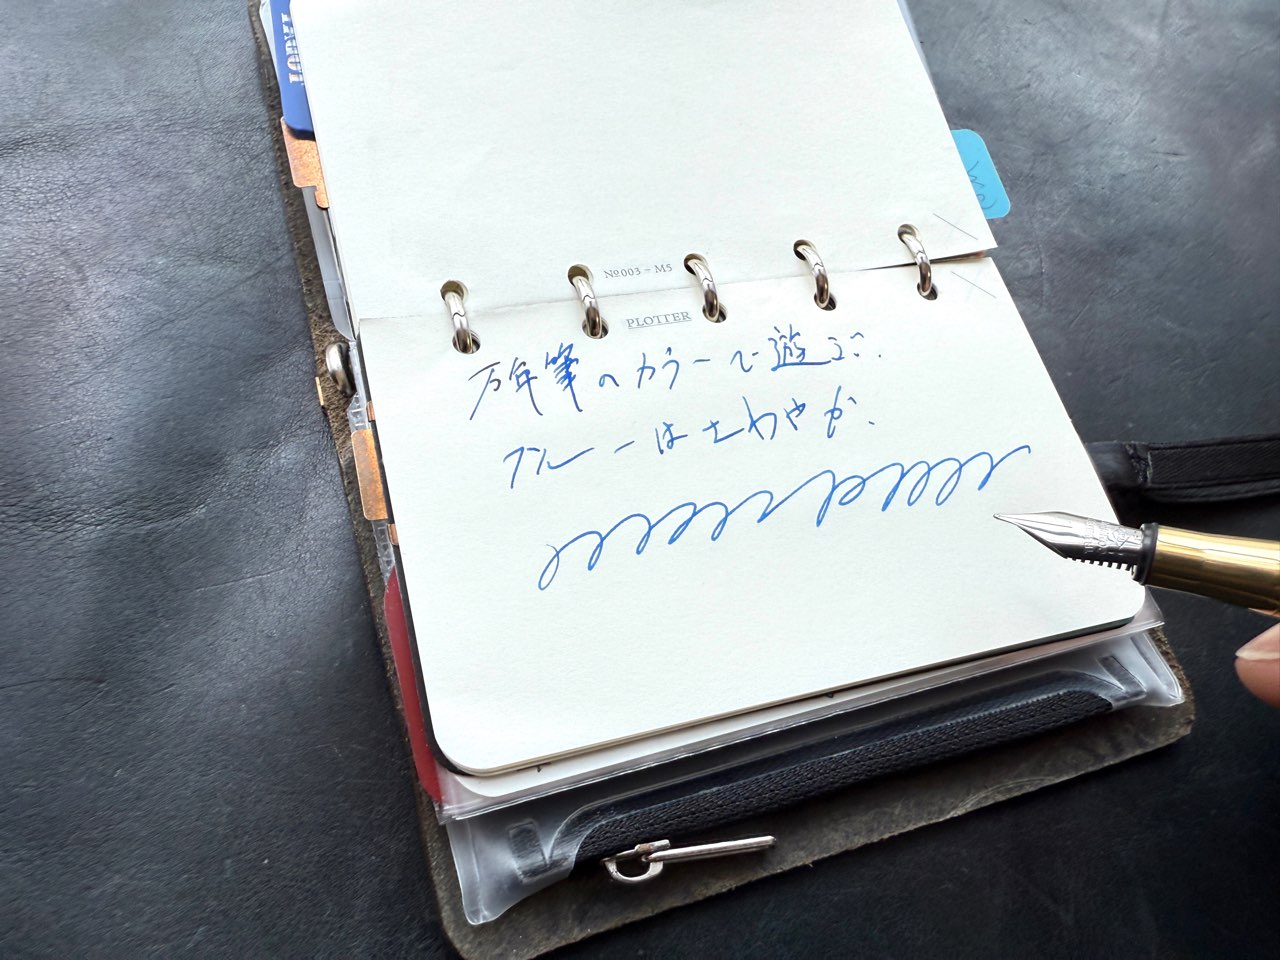 No003 - M5
PLOTTER
万年筆のカラーで遊ぶ.
ブルーはさわやか.